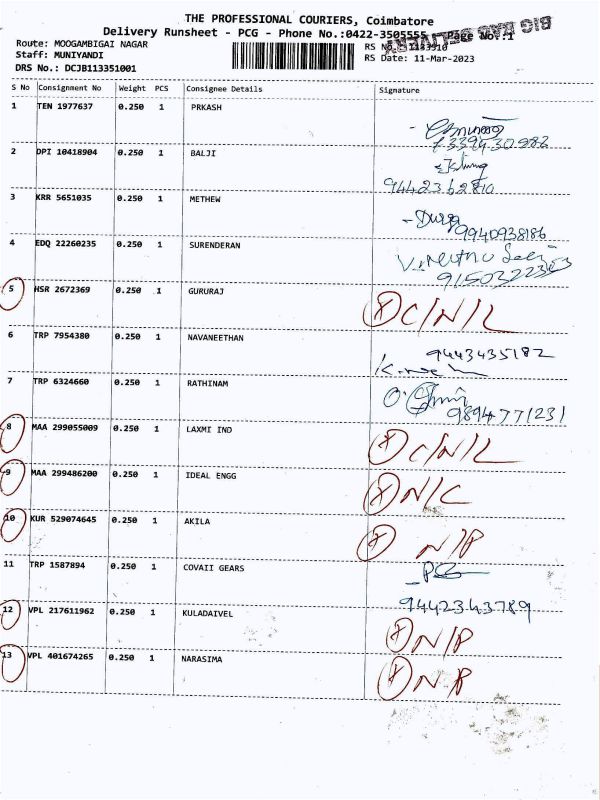 THE PROFESSIONAL COURIERS, Coimbatore
Delivery Runsheet - PCG - Phone No.:0422-3505555 Page No.:1
BIG BAG DELIVERY
Route: MOOGAMBIGAI NAGAR
RS No.
Staff: MUNIYANDI
RS Date: 11-Mar-2023
DRS No.: DCJB113351001
S No Consignment No Weight PCS Consignee Details Signature
1 TEN 1977637 0.250 1 PRKASH
2 DPI 10418904 0.250 1 BALJI
9442362810
3 KRR 5651035 0.250 1 METHEW
Durga
9940938186
4 EDQ 22260235 0.250 1 SURENDERAN
5 HSR 2672369 0.250 1 GURURAJ
X C/N/L
6 TRP 7954380 0.250 1 NAVANEETHAN
9443435182
7 TRP 6324660 0.250 1 RATHINAM
9894771231
8 MAA 299055009 0.250 1 LAXMI IND
X C/N/L
9 MAA 299486200 0.250 1 IDEAL ENGG
X N/C
10 KUR 529074645 0.250 1 AKILA
X N/P
11 TRP 1587894 0.250 1 COVAII GEARS
9442343789
12 VPL 217611962 0.250 1 KULADAIVEL
X N/P
13 VPL 401674265 0.250 1 NARASIMA
X N/P